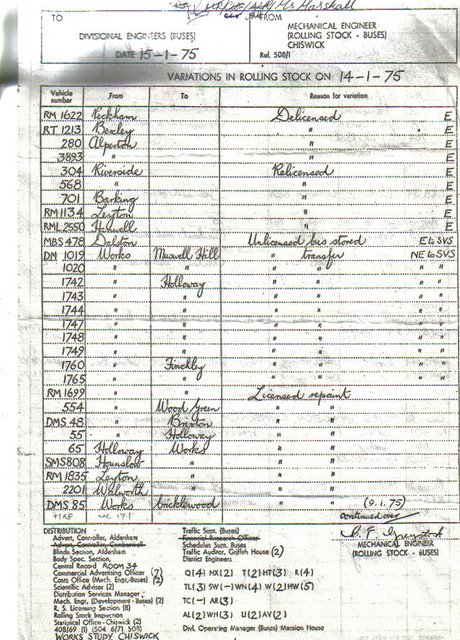 Mr Marshall
TO FROM
DIVISIONAL ENGINEERS (BUSES) MECHANICAL ENGINEER
(ROLLING STOCK - BUSES)
CHISWICK
DATE 15-1-75 Ref. 508/1
VARIATIONS IN ROLLING STOCK ON 14-1-75
Vehicle number From To Reason for variation
RM 1622 Peckham Delicensed E
RT 1213 Bexley " E
280 Alperton " E
3893 " " E
304 Riverside Relicensed E
568 " " E
701 Barking " E
RM 1134 Leyton " E
RML 2550 Hanwell " E
MBS 478 Dalston Unlicensed bus stored E to SVS
DM 1019 Works Muswell Hill " transfer NE to SVS
1020 " " " " " "
1742 " Holloway " " " "
1743 " " " " " "
1744 " " " " " "
1747 " " " " " "
1748 " " " " " "
1749 " " " " " "
1760 " Finchley " " " "
1765 " " " " " "
RM 1699 " " Licensed repaint
554 " Wood Green " "
DMS 48 " Brixton " "
55 " Holloway " "
65 Holloway Works " "
SMS 808 Hounslow " " "
RM 1835 Leyton " " "
2201 Walworth " " "
DMS 85 Works Cricklewood " " (9.1.75)
continued over
DISTRIBUTION
Advert. Controller, Aldenham
Blinds Section, Aldenham
Body Spec. Section,
Central Record ROOM 34
Commercial Advertising Officer (7)
Costs Office (Mech. Engr. Buses) (2)
Scientific Adviser (2)
Distribution Services Manager
Mech. Engr. (Development - Buses) (2)
R. S. Licensing Section (8)
Rolling Stock Inspection
Statistical Office - Chiswick (2)
408/69 (1) 504 6/71 509)
WORKS STUDY CHISWICK
Traffic Supt. (Buses)
Financial Research Officer
Schedules Supt. Buses
Traffic Auditor, Griffith House (2)
District Engineers
Q(4) NX(2) T(2) HT(3) R(4)
TL(3) SW(-) WN(4) W(2) HW(5)
TC(-) AR(3)
AL(2) WH(3) U(2) AV(2)
Divl. Operating Manager (Buses) Mansion House
MECHANICAL ENGINEER
(ROLLING STOCK - BUSES)